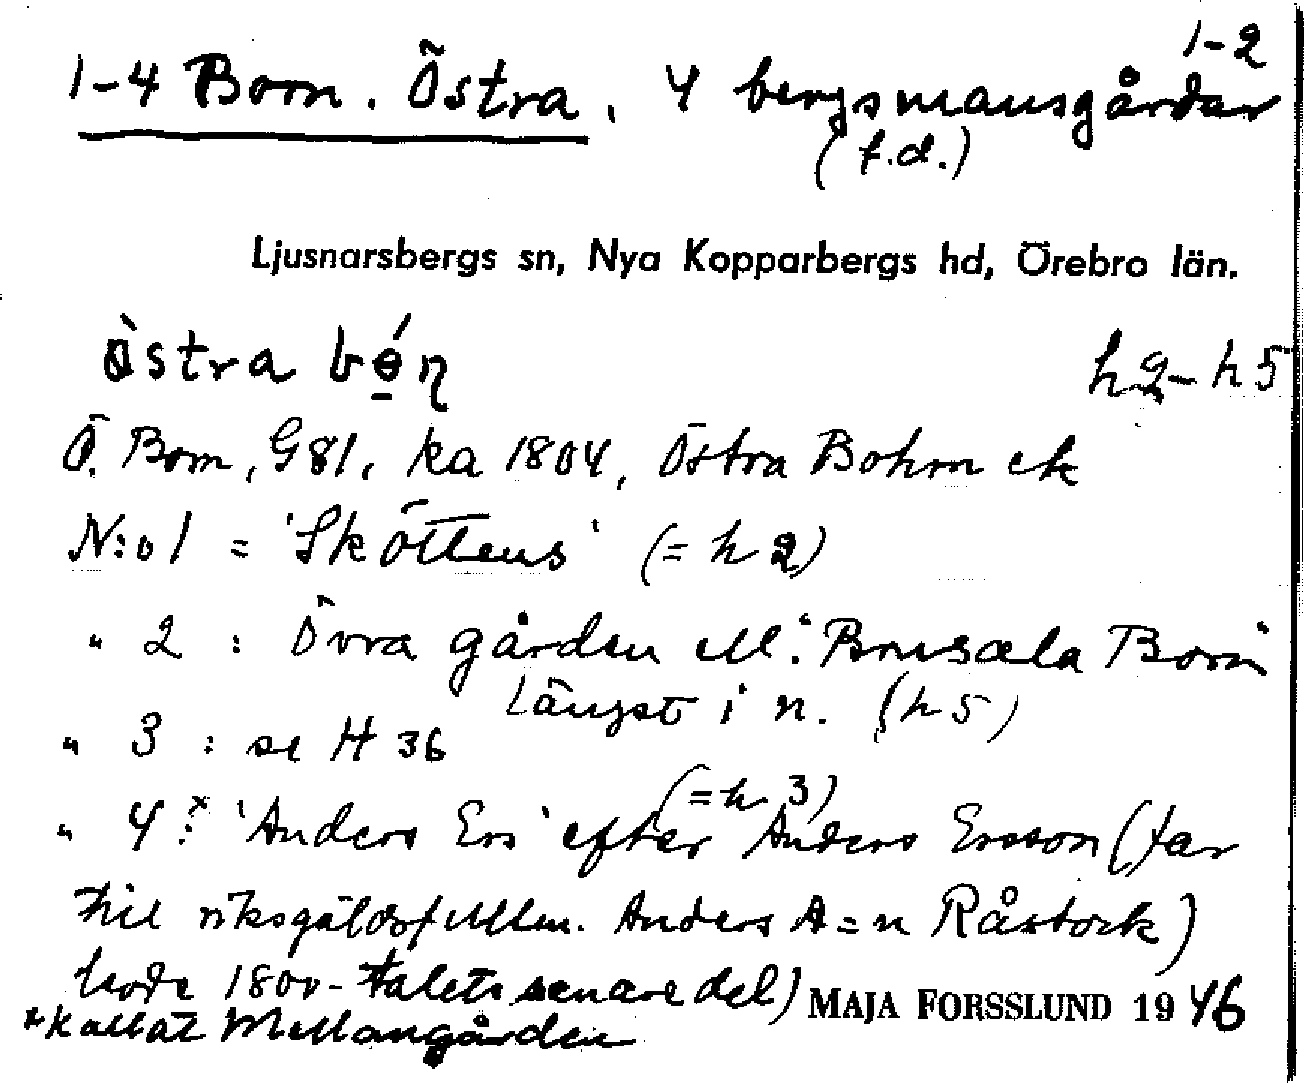 1-2
1-4 Born. Östra. 4 bergsmansgårdar
(f.d.)
Ljusnarsbergs sn, Nya Kopparbergs hd, Örebro län.
östra bo̱n h2-h5
Ö. Born, G81, ka 1804, Östra Bohrn ek
N:o 1 = 'Sköttens' (= h2)
" 2 : Övra gården ell. "Brusala Born"
längst i n. (h5)
" 3 : se H 36
(=h 3)
" 4:x 'Anders Ers' efter Anders Ersson (far
till riksgäldsfullm. Anders A=n Råstock)
levde 1800-talets senare del)
x kallat Mellangården
MAJA FORSSLUND 1946